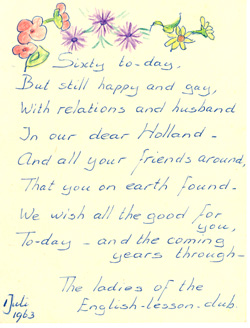 Sixty to-day,
But still happy and gay,
With relations and husband
In our dear Holland -
And all your friends around,
That you on earth found -
We wish all the good for
you,
To-day - and the coming
years through -
The ladies of the
English-lesson-club.
1 Juli
1963